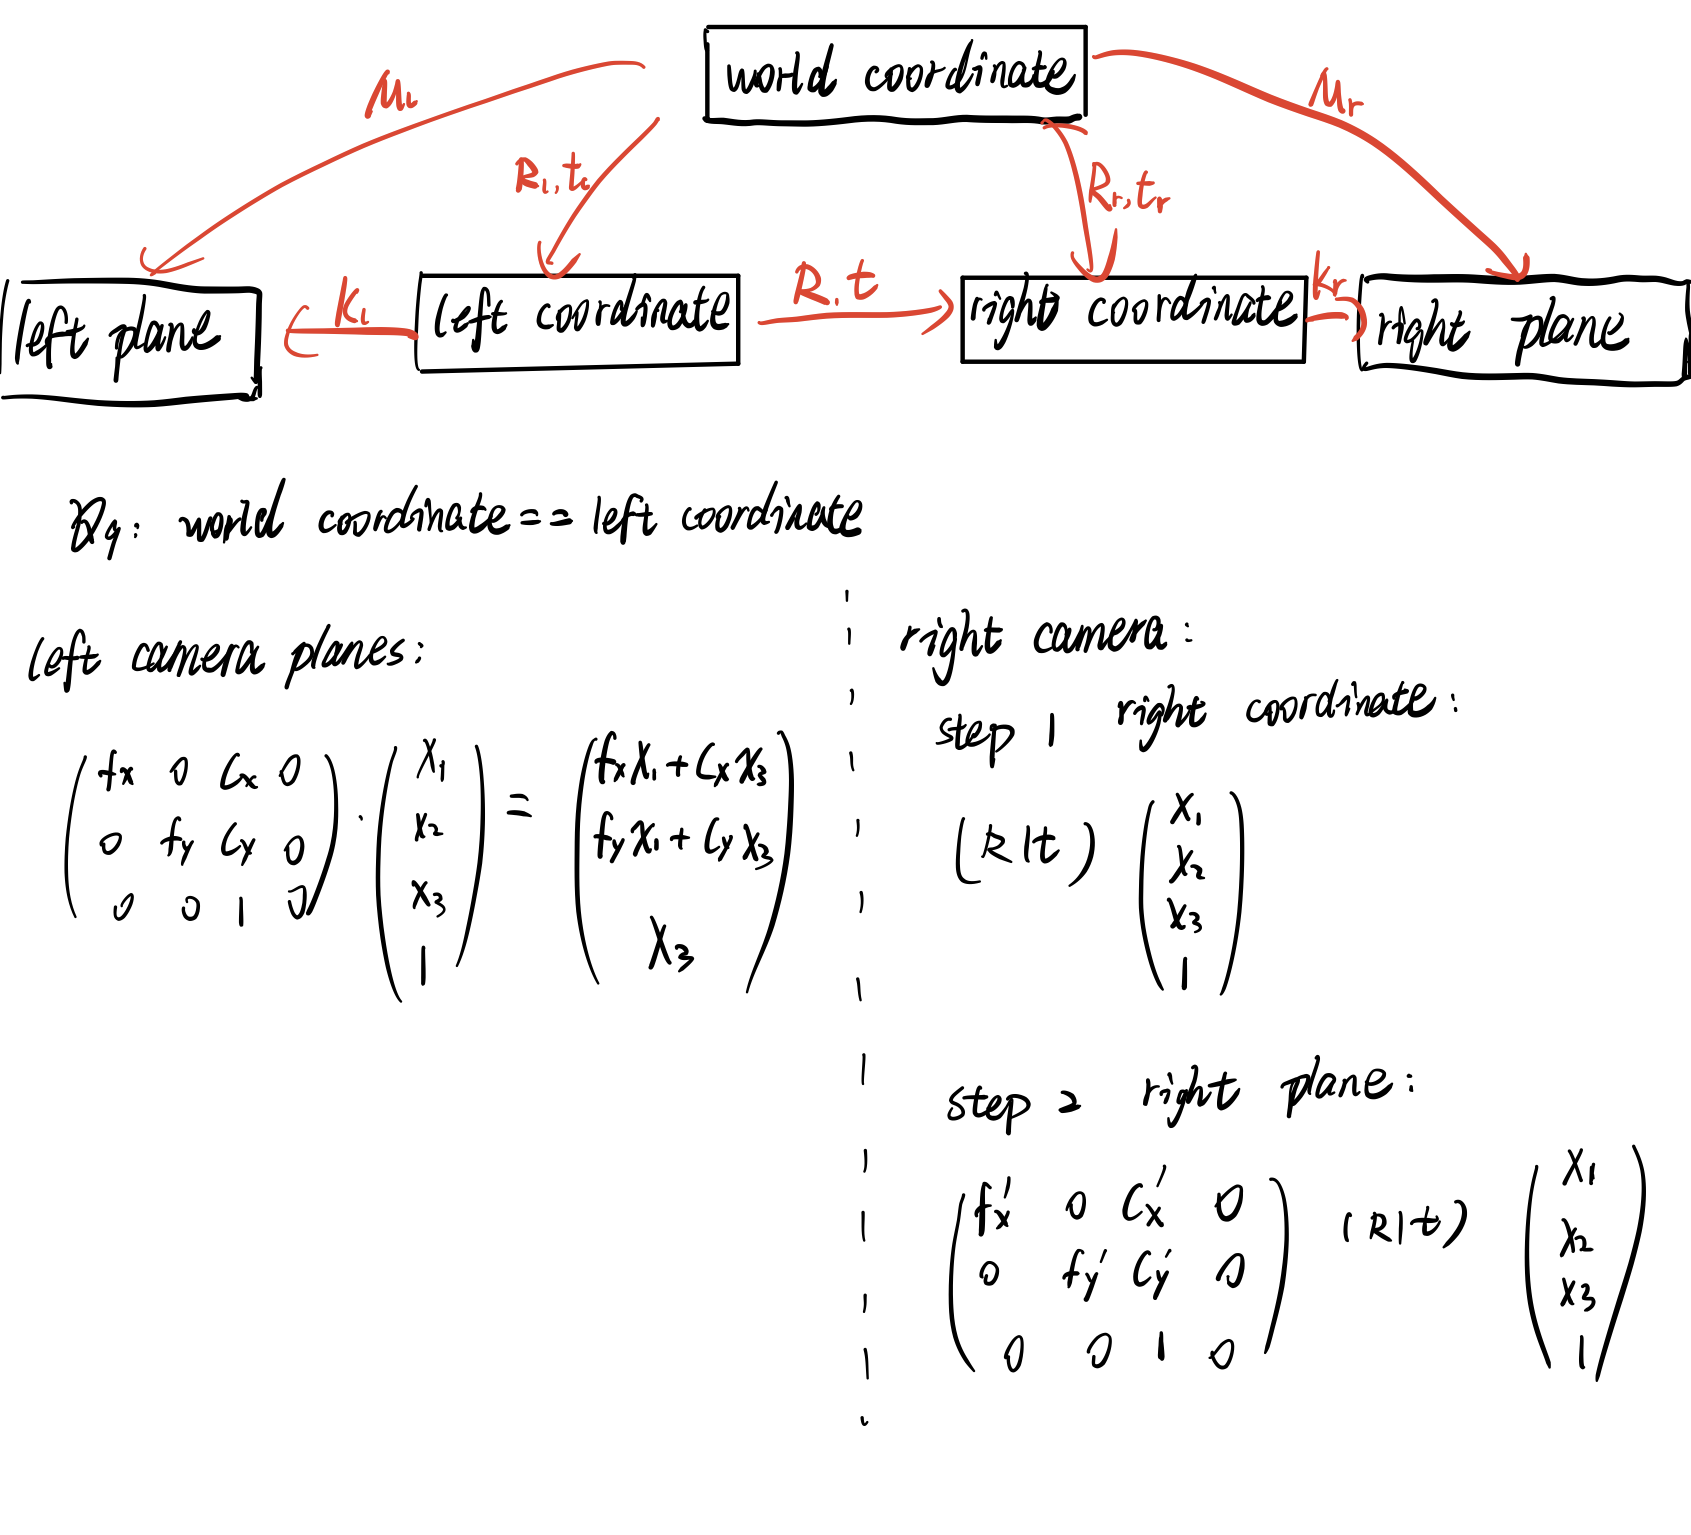 world coordinate
M_L
M_r
R_L, t_L
R_r, t_r
left plane
K_L
left coordinate
R, t
right coordinate
K_r
right plane
Q9: world coordinate == left coordinate
left camera planes:
( fx 0 Cx 0 ) · ( X1 ) = ( fxX1 + CxX3 )
( 0 fy Cy 0 ) ( X2 ) ( fyX1 + CyX3 )
( 0 0 1 0 ) ( X3 ) ( X3 )
( 1 )
right camera:
step 1 right coordinate:
(R|t) ( X1 )
( X2 )
( X3 )
( 1 )
step 2 right plane:
( fx' 0 Cx' 0 ) (R|t) ( X1 )
( 0 fy' Cy' 0 ) ( X2 )
( 0 0 1 0 ) ( X3 )
( 1 )